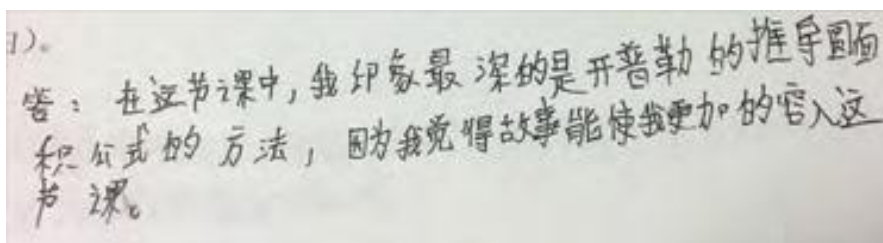 1)。
答：在这节课中，我印象最深的是开普勒的推导圆面
积公式的方法，因为我觉得故事能使我更加的容入这
节课。